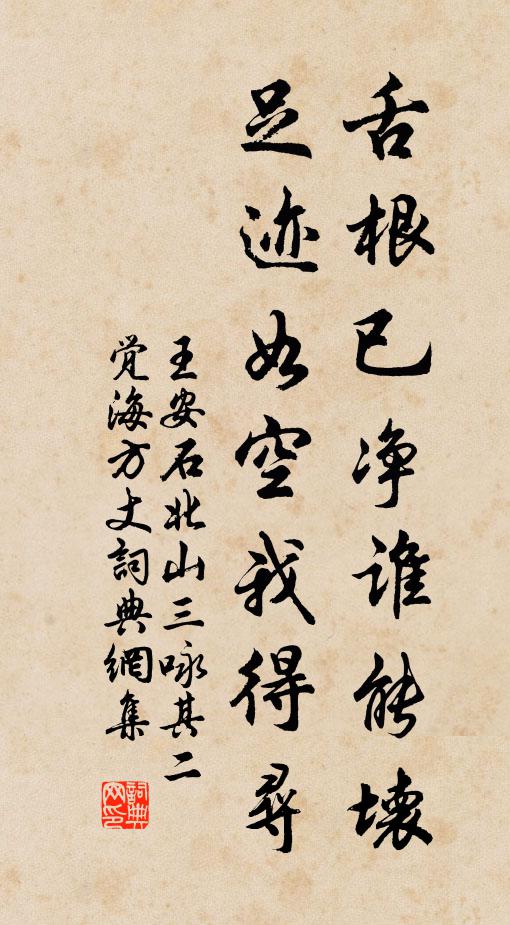 舌根已净谁能壊
足迹如空我得尋
王安石北山三咏其二
覚海方丈詞典網集
詞典网印